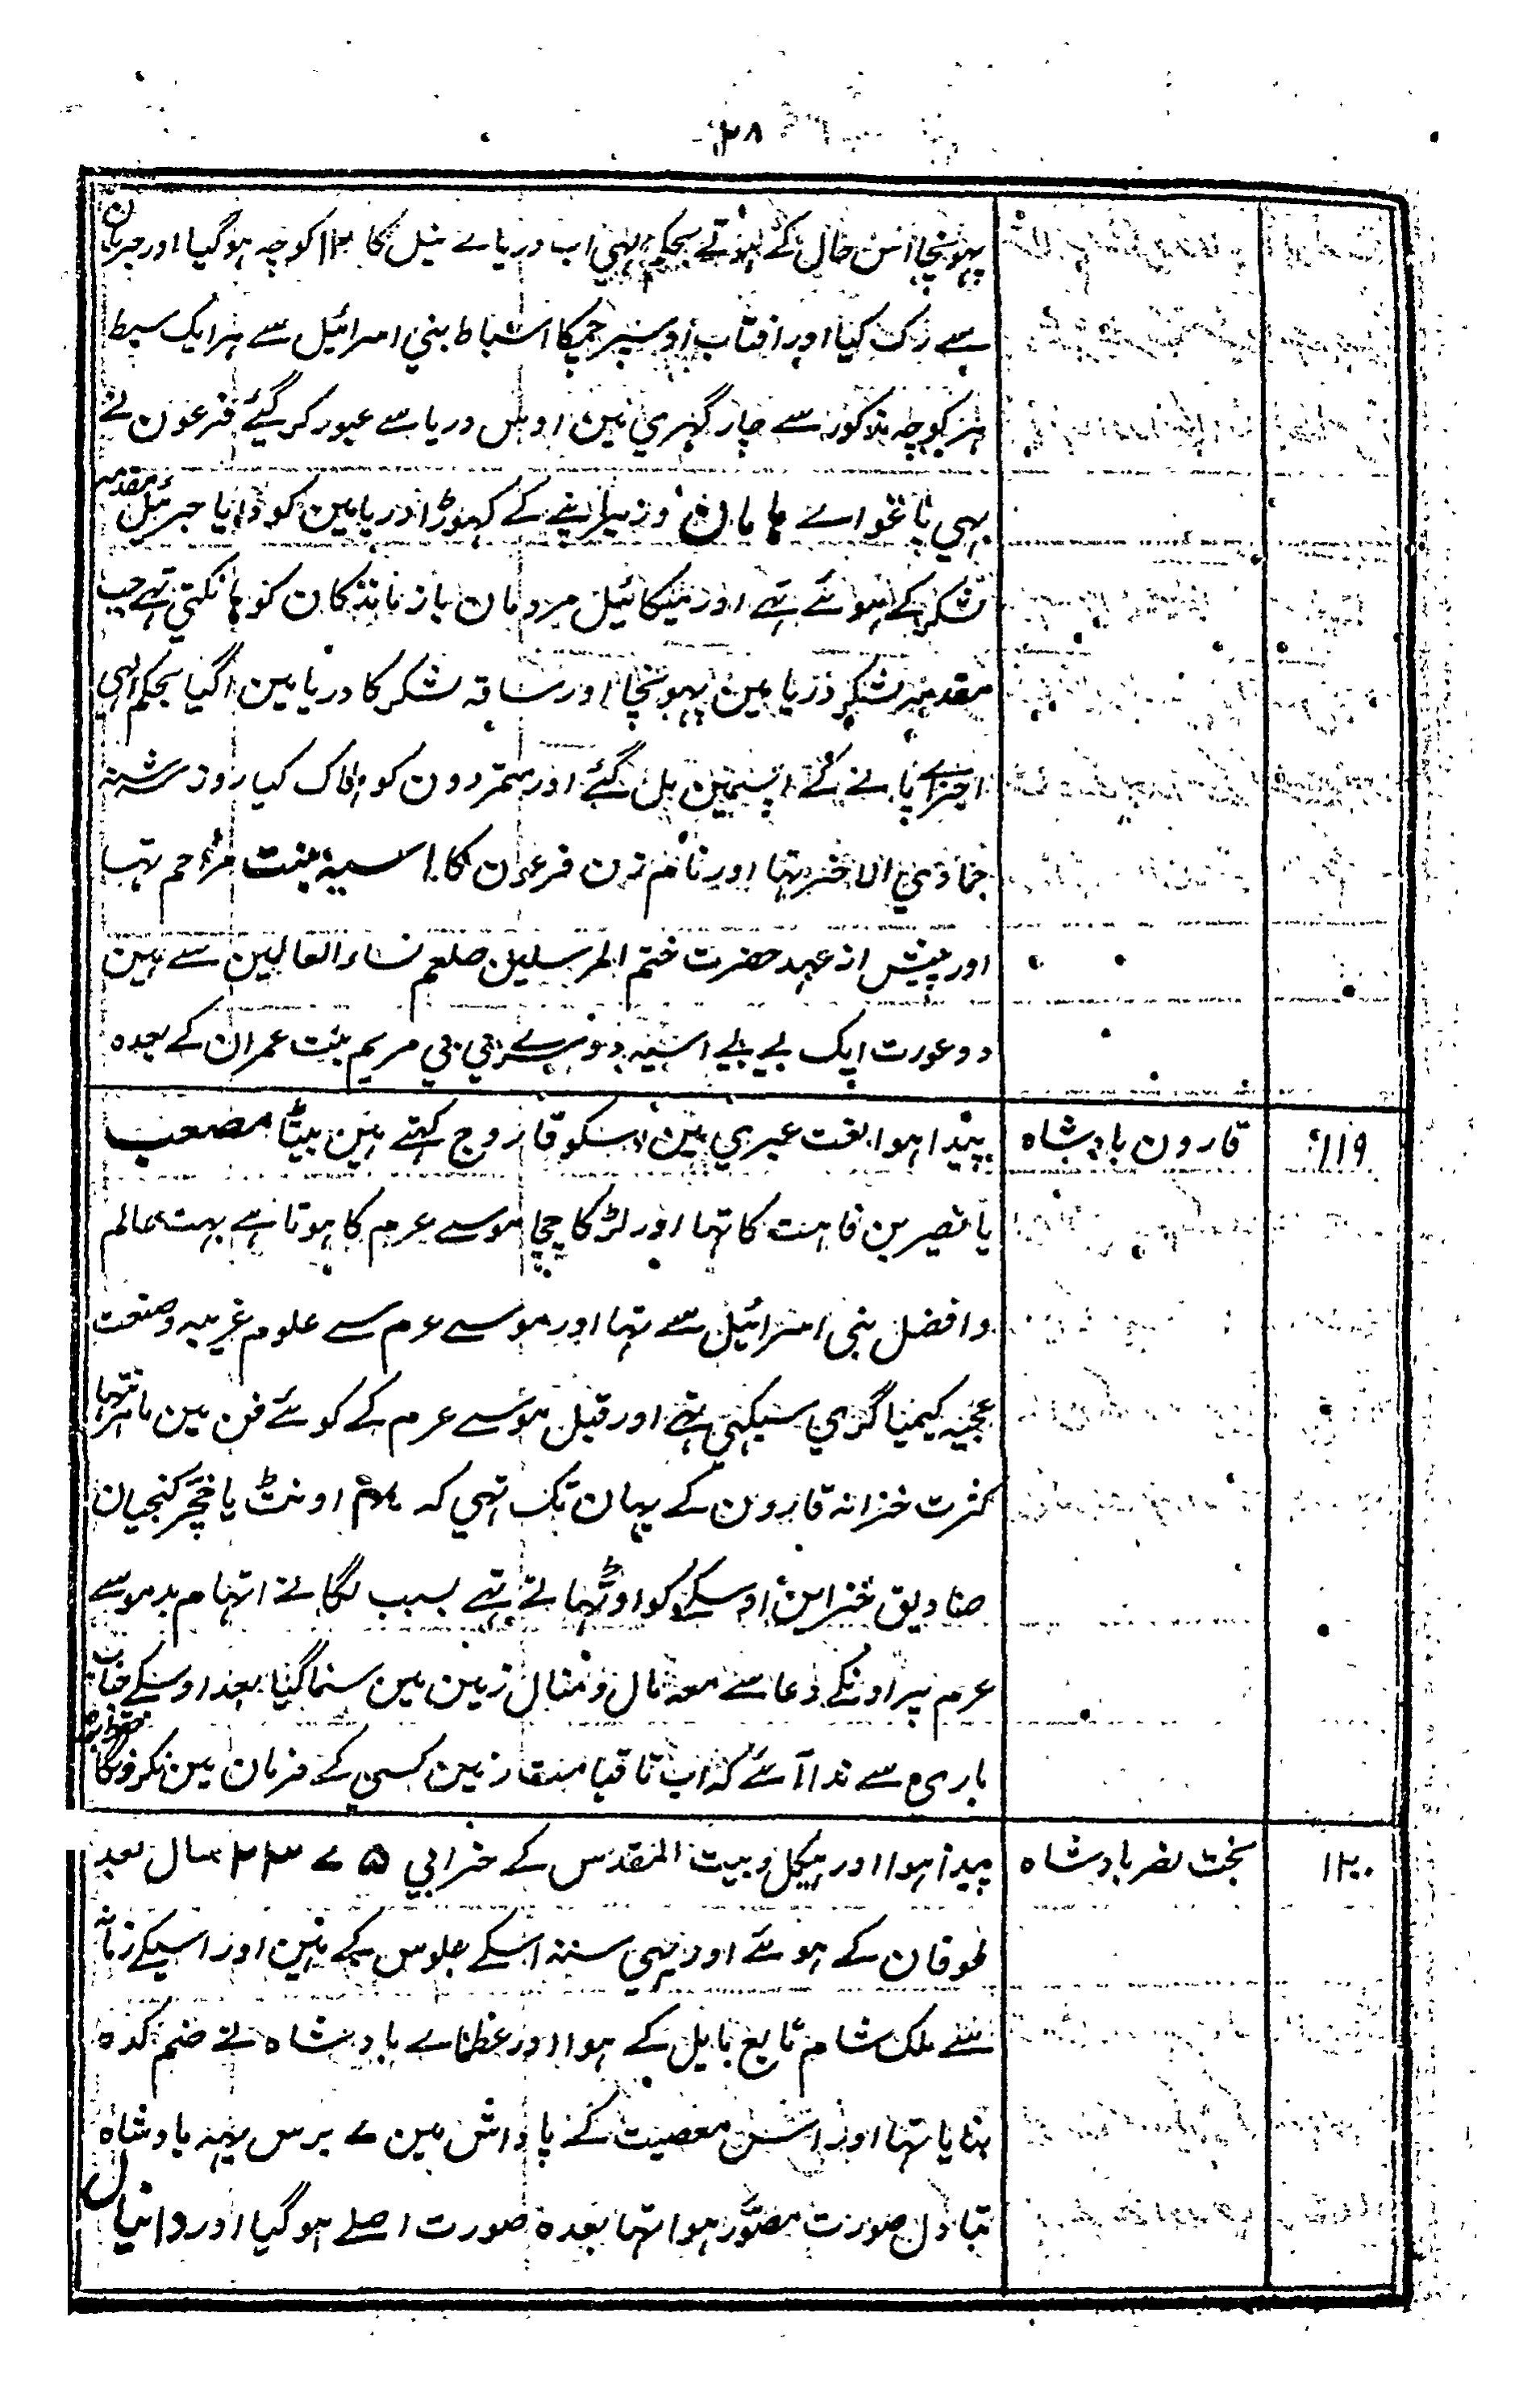 ۲۸
پہونچا اس حال کے ہوتے بحکم الہی اب دریاے نیل کا ۱۲ کوچہ ہو گیا اور جریان
سے رک گیا اور افتاب اوسپر چمکا اسباط بنی اسرائیل سے ہر ایک سبط
ہر کوچہ مذکور سے چار گہڑی مین اوس دریا سے عبور کر گئے فرعون نے
بہی باغواے ہامان وزیر اپنے کے گہوڑا دریا مین کودایا جبرئیل مقدمہ
لشکر کے ہوئے تہے اور میکائیل مردمان بازماندکان کو ہانکتی تہے جب
مقدمہ لشکر دریا مین پہونچا اور ساقہ لشکر کا دریا مین اگیا بحکم الہی
اجزاے پانے کے اپسمین مل گئے اور متمردون کو ہلاک کیا روز شنبہ
جمادی الاخر تہا اور نام زن فرعون کا اسیہ بنت مزاحم تہا
اور پیش از عہد حضرت ختم المرسلین صلعم نساء العالمین سے ہین
دو عورت ایک بے بے اسیہ دوسرے بی بی مریم بنت عمران کے بعدہ
۱۱۹ قارون بادشاہ پیدا ہوا لغت عبری مین اسکو قاروج کہتے ہین بیٹا مصعب
یا نصیر بن فاہت کا تہا اور لڑکا چچا موسے عرم کا ہوتا ہے بہت عالم
و افضل بنی اسرائیل سے تہا اور موسے عرم سے علوم غریبہ و صنعت
عجیبہ کیمیا گری سیکہی تہے اور قبل موسے عرم کے کوئے فن مین ماہر نتہا
کثرت خزانہ قارون کے یہان تک تہی کہ اونٹ یا خچر کنجیان
صنادیق خزاین اوسکے کو اوٹہاتے تہے بسبب لگانے اتہام بد موسے
عرم پر اونکے دعا سے معہ مال و منال زمین مین سما گیا بعد اوسکے جناب
باری سے ندا آئے کہ اب تا قیامت زمین کسی کے فرمان مین نکرونگا
۱۲۰ بخت نصر بادشاہ پیدا ہوا اور ہیکل و بیت المقدس کے خرابی سال بعد
طوفان کے ہوئے اور یہی سنہ اسکے جلوس کے ہین اور اسیکے زمانہ
سے ملک شام تابع بابل کے ہوا اور عظماے بادشاہ نے صنم کدہ
بنایا تہا اور اس معصیت کے پاداش مین ۷ برس یہہ بادشاہ
تبادل صورت مصور ہوا تہا بعدہ صورت اصلے ہو گیا اور دانیال